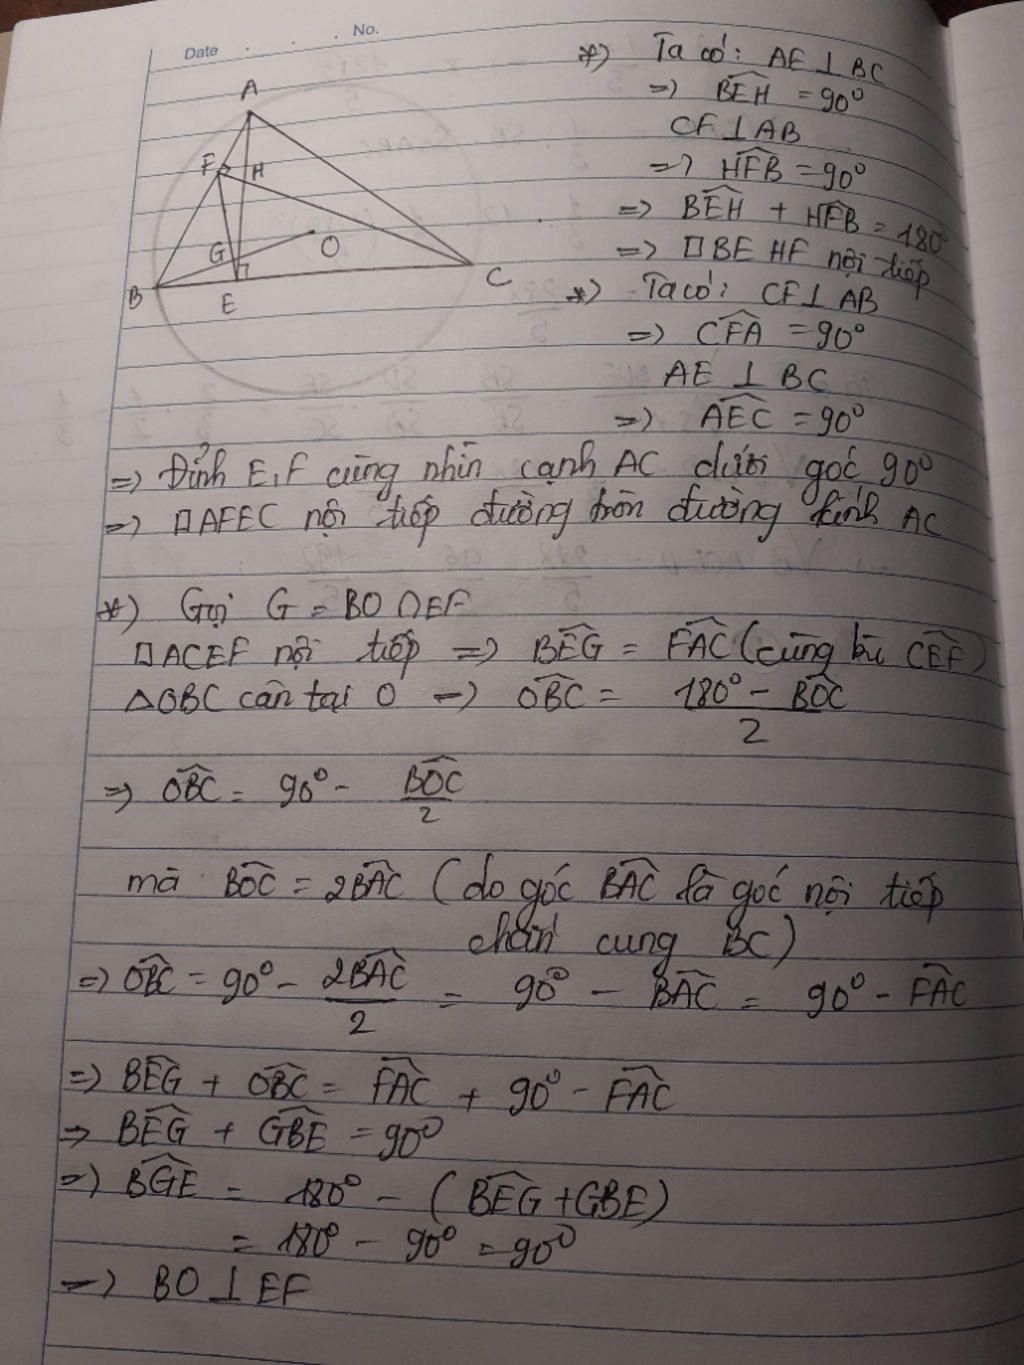 Date . . . No.
A
F
H
G
O
B
E
C
*) Ta có: AE ⊥ BC
=> BEH = 90°
CF ⊥ AB
=> HFB = 90°
=> BEH + HFB = 180°
=> □BEHF nội tiếp
*) Ta có: CF ⊥ AB
=> CFA = 90°
AE ⊥ BC
=> AEC = 90°
=> Đỉnh E, F cùng nhìn cạnh AC dưới góc 90°
=> □AFEC nội tiếp đường tròn đường kính AC
*) Gọi G = BO ∩ EF
□ACEF nội tiếp => BEG = FAC (cùng bù CEF)
△OBC cân tại O => OBC = (180° - BOC)/2
=> OBC = 90° - BOC/2
mà BOC = 2BAC (do góc BAC là góc nội tiếp
chắn cung BC)
=> OBC = 90° - 2BAC/2 = 90° - BAC = 90° - FAC
=> BEG + OBC = FAC + 90° - FAC
=> BEG + GBE = 90°
=> BGE = 180° - (BEG + GBE)
= 180° - 90° = 90°
=> BO ⊥ EF